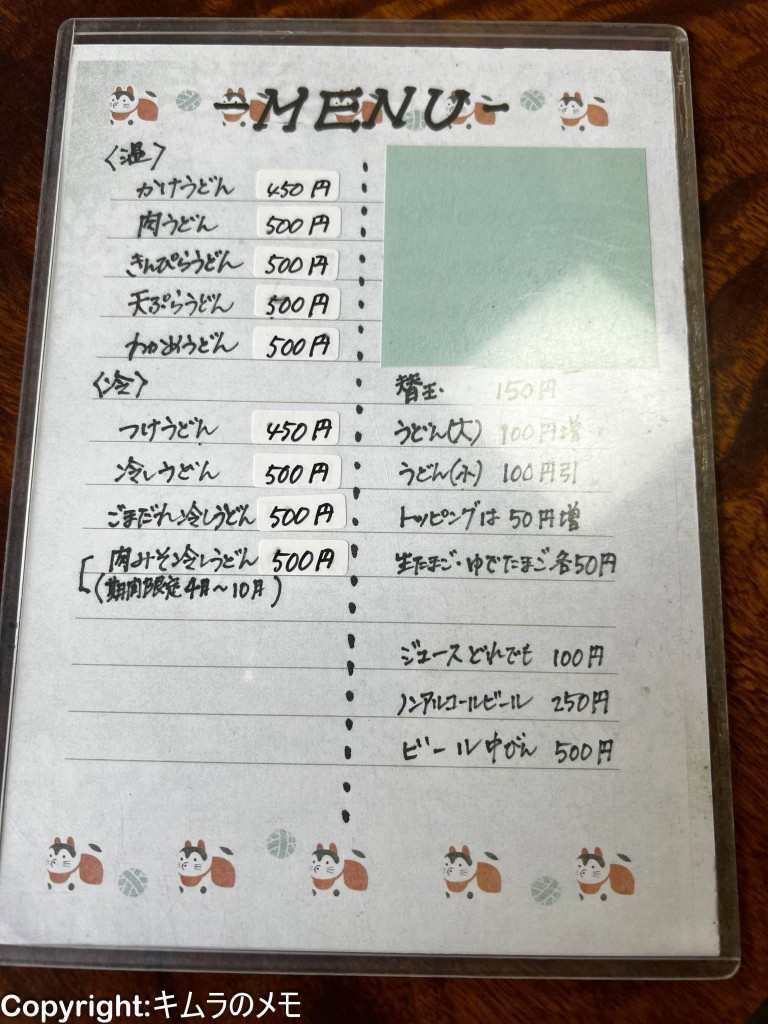 -MENU-
〈温〉
かけうどん 450円
肉うどん 500円
きんぴらうどん 500円
天ぷらうどん 500円
わかめうどん 500円
〈冷〉
つけうどん 450円
冷しうどん 500円
ごまだれ冷しうどん 500円
肉みそ冷しうどん 500円
(期間限定 4月～10月)
替玉 150円
うどん(大) 100円増
うどん(小) 100円引
トッピングは 50円増
生たまご・ゆでたまご各50円
ジュースどれでも 100円
ノンアルコールビール 250円
ビール中びん 500円
Copyright:キムラのメモ